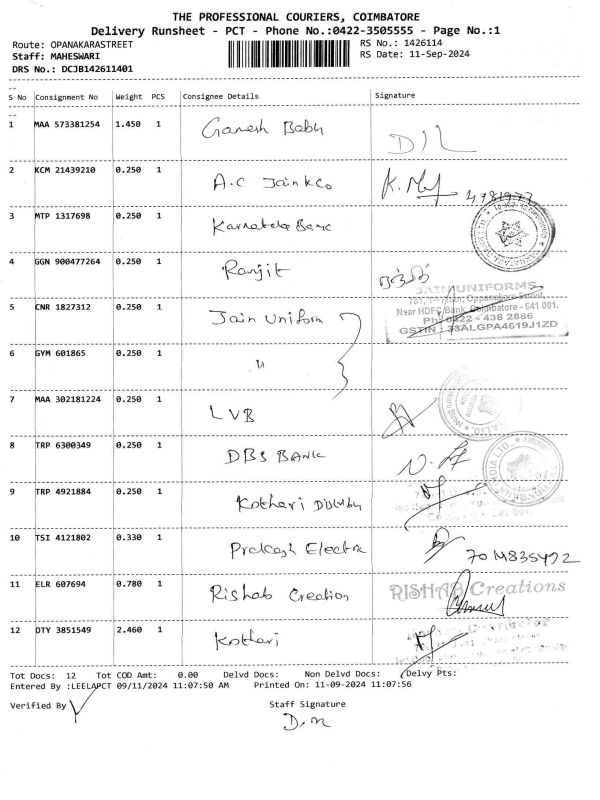 THE PROFESSIONAL COURIERS, COIMBATORE
Delivery Runsheet - PCT - Phone No.:0422-3505555 - Page No.:1
Route: OPANAKARASTREET RS No.: 1426114
Staff: MAHESWARI RS Date: 11-Sep-2024
DRS No.: DCJB142611401
S No Consignment No Weight PCS Consignee Details Signature
1 MAA 573381254 1.450 1 Ganesh Babu
D/L
2 KCM 21439210 0.250 1 A.C Jain & Co
3 MTP 1317698 0.250 1 Karnataka Bank
4 GGN 900477264 0.250 1 Ranjit
JAIN UNIFORMS
5 CNR 1827312 0.250 1 Jain Uniform
Near HDFC Bank, Coimbatore - 641 001.
Ph: 0422 - 438 2886
GSTIN : 33ALGPA4619J1ZD
6 GYM 601865 0.250 1 "
7 MAA 302181224 0.250 1 LVB
8 TRP 6300349 0.250 1 DBS BANK
9 TRP 4921884 0.250 1 Kothari
10 TSI 4121802 0.330 1 Prakash Electric
11 ELR 607694 0.780 1 Rishab Creation RISHAB Creations
12 OTY 3851549 2.460 1 Kothari
Tot Docs: 12 Tot COD Amt: 0.00 Delvd Docs: Non Delvd Docs: Delvy Pts:
Entered By :LEELAPCT 09/11/2024 11:07:50 AM Printed On: 11-09-2024 11:07:56
Verified By Staff Signature
D.M